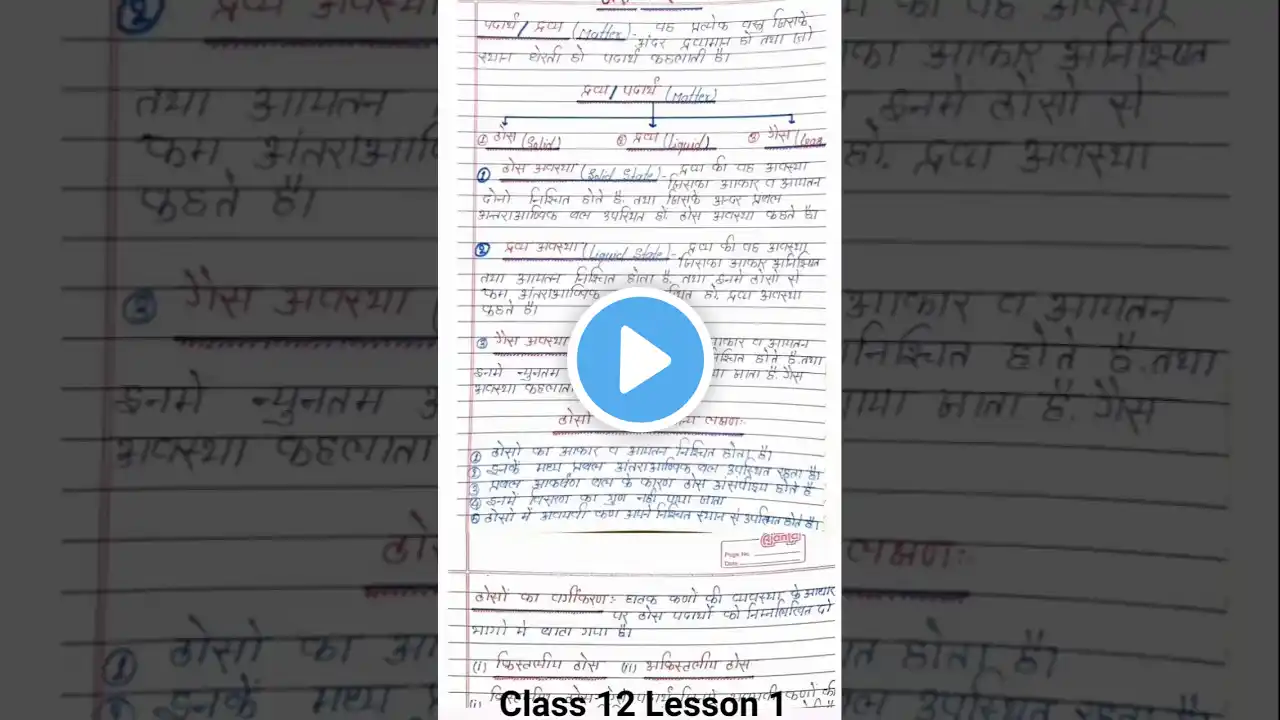 पदार्थ / द्रव्य (Matter)- वह प्रत्येक वस्तु जिसके
अंदर द्रव्यमान हो तथा जो
स्थान घेरती हो पदार्थ कहलाती है।
द्रव्य / पदार्थ (Matter)
① ठोस (Solid) ② द्रव्य (Liquid) ③ गैस
① ठोस अवस्था (Solid State)- द्रव्य की वह अवस्था
जिसका आकार व आयतन
दोनो निश्चित होते है. तथा जिसके अन्दर प्रबल
अन्तराआण्विक बल उपस्थित हो. ठोस अवस्था कहते है।
② द्रव्य अवस्था (Liquid State)- द्रव्य की वह अवस्था
जिसका आकार अनिश्चित
तथा आयतन निश्चित होता है. तथा इनमे ठोसो से
कम अंतराआण्विक हो. द्रव्य अवस्था
कहते है।
③ गैस अवस्था आकार व आयतन
होते है.तथा
इनमे न्युनतम जाता है. गैस
अवस्था कहलाता
ठोसो लक्षणः
① ठोसो का आकार व आयतन निश्चित होता है।
② इनके मध्य प्रबल अंतराआण्विक बल उपस्थित रहता है।
③ प्रबल आकर्षण बल के कारण ठोस असंपीड्य होते है
④ इनमें विसरण का गुण नही पाया जाता
⑤ ठोसो में अवयवी कण अपने निश्चित स्थान से उपस्थित होते है।
Ajanta
Page No.
Date
ठोसो का वर्गीकरण : घटक कणो की व्यवस्था के आधार
पर ठोस पदार्थो को निम्नलिखित दो
भागो मे बाटा गया है।
(i) क्रिस्टलीय ठोस (ii) अक्रिस्टलीय ठोस
Class 12 Lesson 1